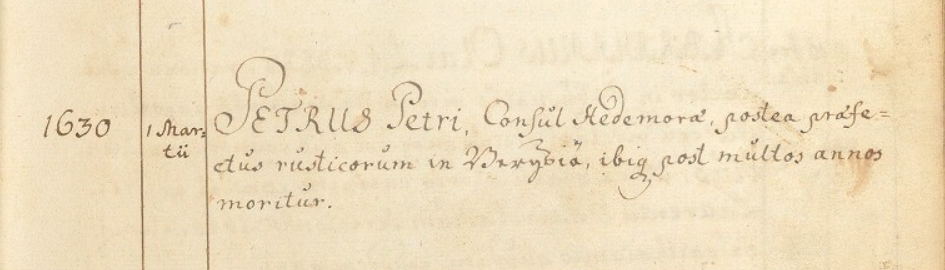 1630 1 Mar= PETRUS Petri, Consul Hedemoræ, postea præfe=
tii ctus rusticorum in ibiq post multos annos
moritur.